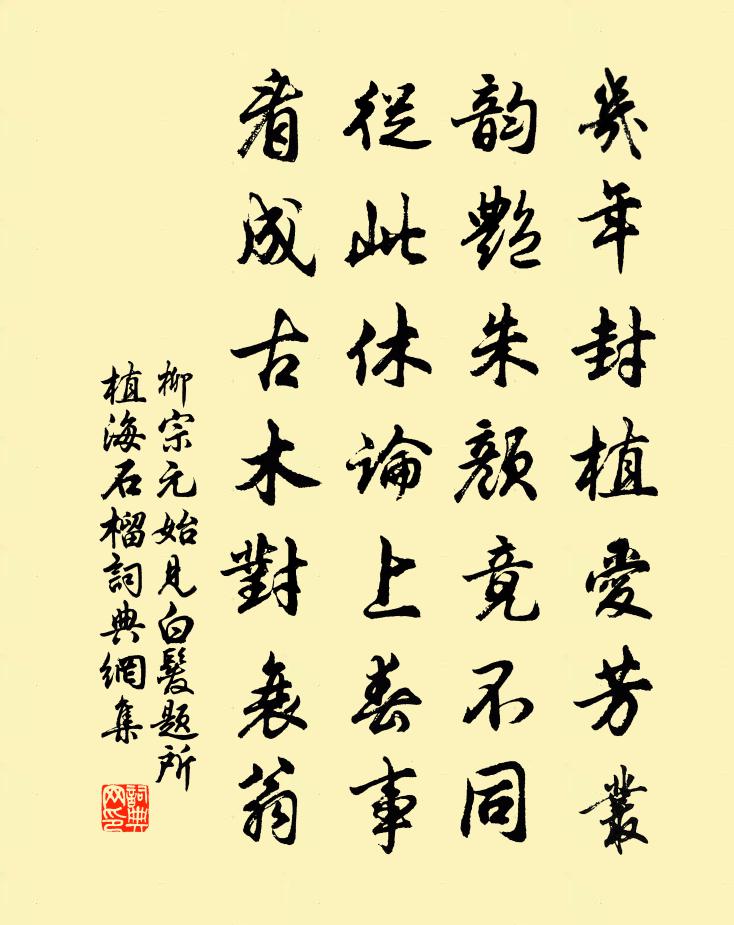 幾年封植愛芳叢
韵艷朱顏竟不同
從此休論上春事
看成古木對衰翁
柳宗元始見白髮题所
植海石榴詞典網集
詞典网印